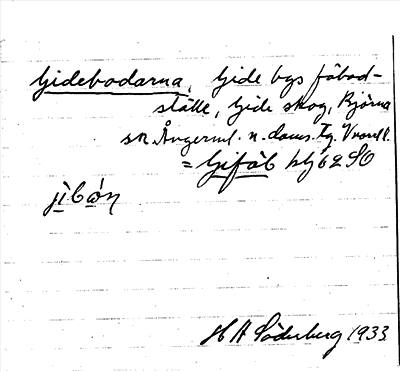 Gidebodarna, Gide bys fäbod-
ställe, Gide skog, Björna
sn. Ångerml. n. doms.
= Gifäb blj 62 SO
jìbòn
H A Söderberg 1933